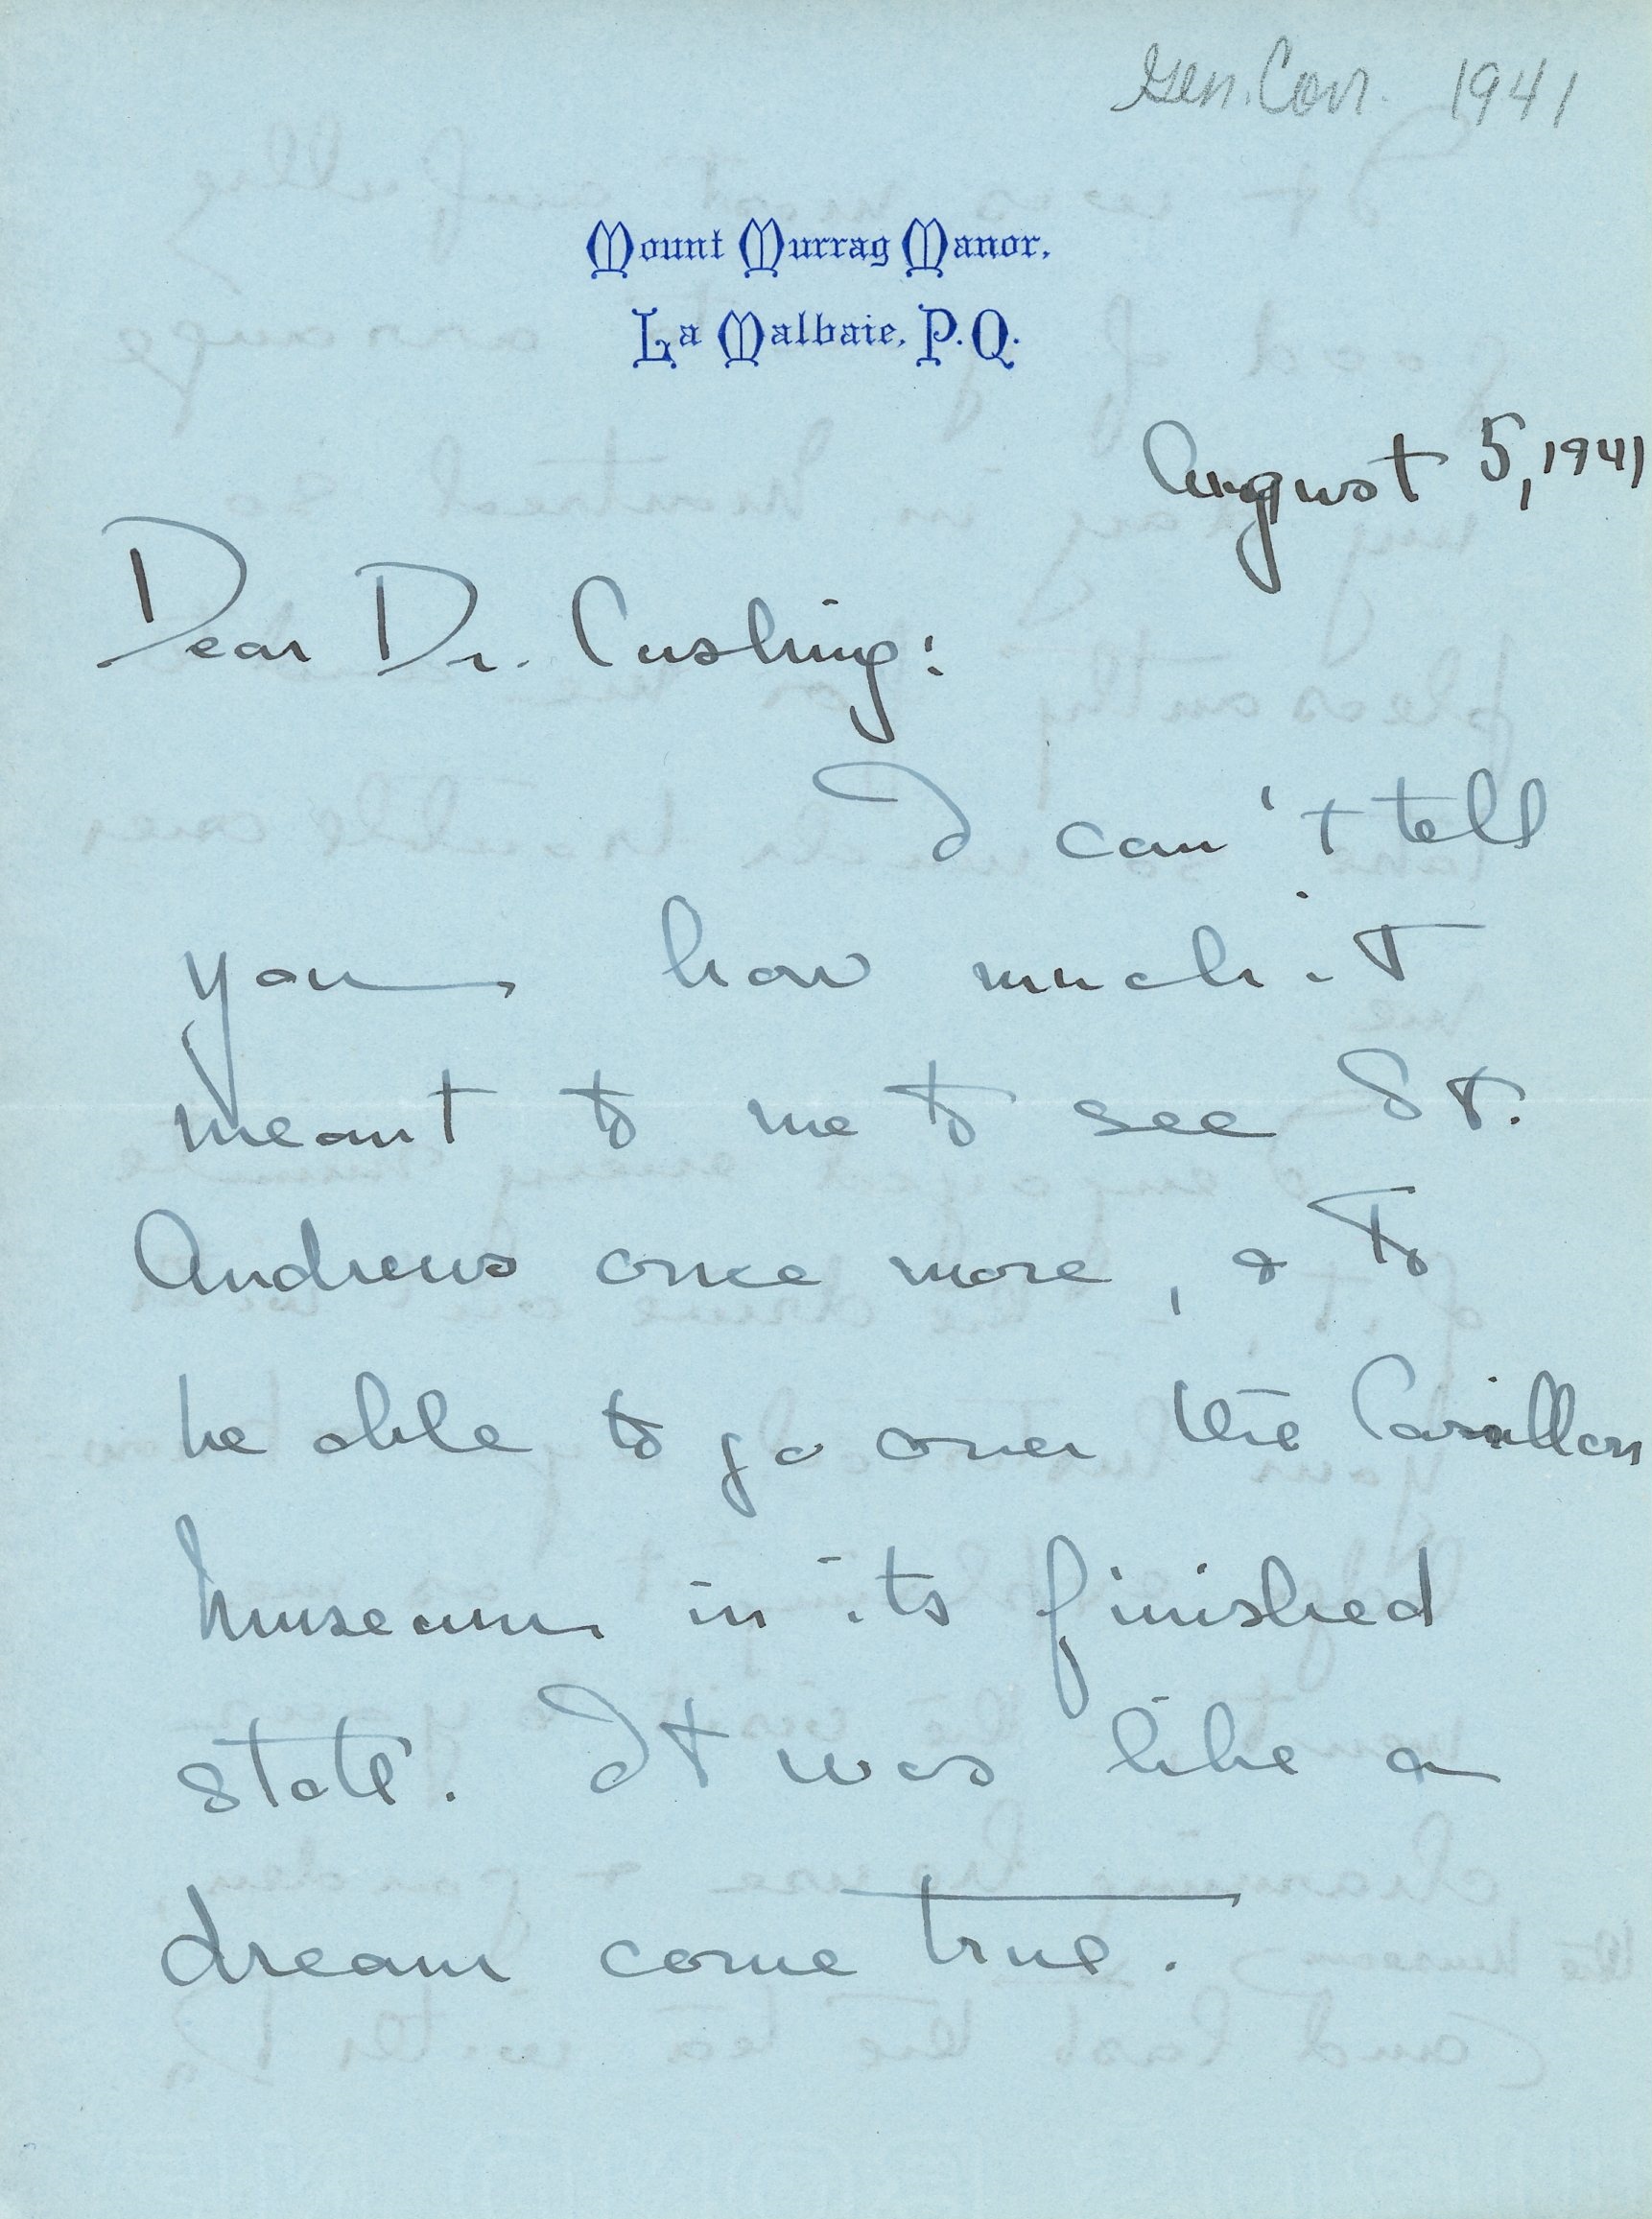 Gen. Corr. 1941
Mount Murray Manor,
La Malbaie, P.Q.
August 5, 1941
Dear Dr. Cushing:
I can't tell
you how much it
meant to me to see St.
Andrews once more, & to
be able to go over the Carillon
Museum in its finished
state. It was like a
dream come true.